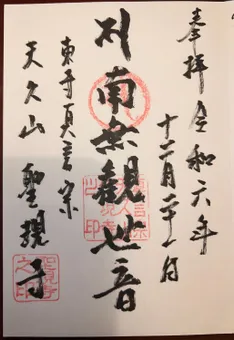 奉拝 令和六年
十二月二十一日
南無観世音
東寺真言宗
天久山 聖現寺
聖現寺之印